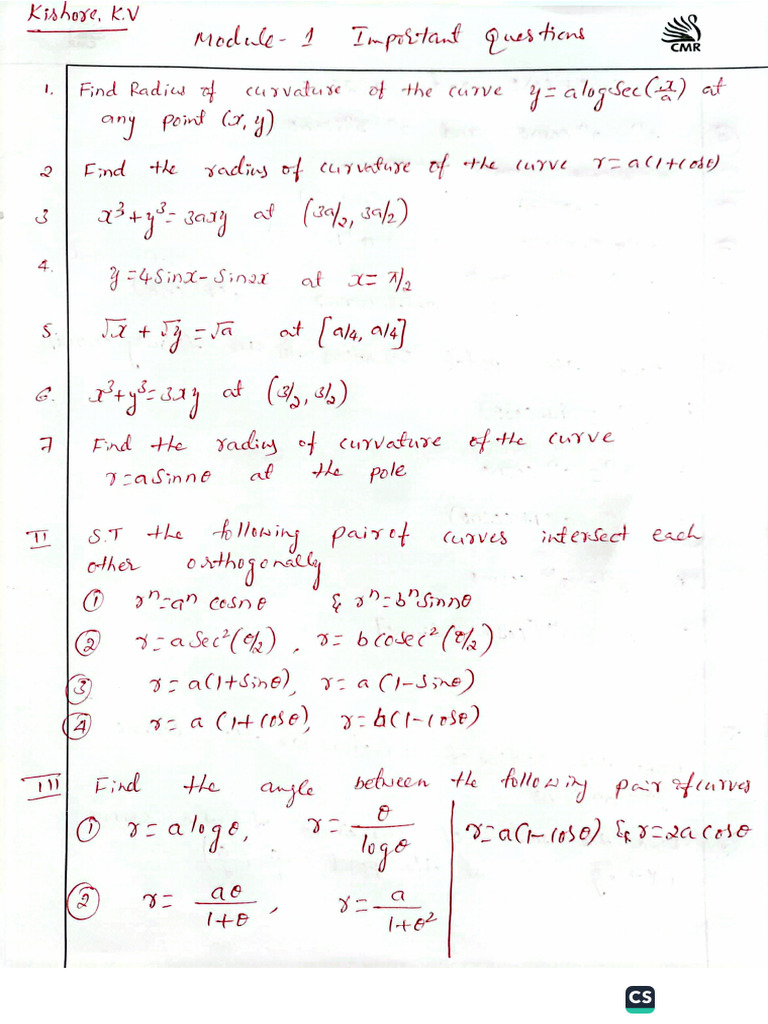 Kishore. K.V
Module-1 Important Questions
CMR
1. Find Radius of curvature of the curve y = a log sec(x/a) at
any point (x, y)
2 Find the radius of curvature of the curve r = a(1+cosθ)
3 x³+y³=3axy at (3a/2, 3a/2)
4. y=4sinx-sin2x at x=π/2
5. √x + √y = √a at [a/4, a/4]
6. x³+y³=3xy at (3/2, 3/2)
7 Find the radius of curvature of the curve
r=asinnθ at the pole
II S.T the following pair of curves intersect each
other orthogonally
① rⁿ=aⁿ cosnθ & rⁿ=bⁿsinnθ
② r=aSec²(θ/2), r= bcosec²(θ/2)
③ r=a(1+sinθ), r=a(1-sinθ)
④ r=a(1+cosθ), r=b(1-cosθ)
III Find the angle between the following pair of curves
① r=alogθ, r=θ/logθ r=a(1-cosθ) & r=2acosθ
② r= aθ/1+θ, r=a/1+θ²
CS